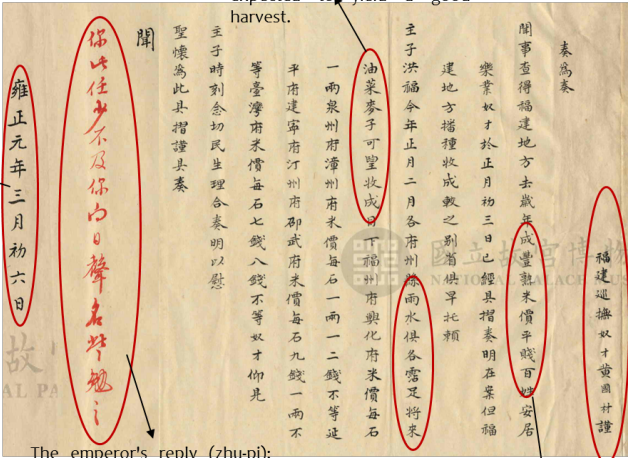 expected to yield a good
harvest.
福建巡撫奴才黃國材謹
奏為奏
聞事查得福建地方去歲年成豐熟米價平賤百姓安居
樂業奴才於正月初三日已經具摺奏明在案但福
建地方播種收成較之別省俱早托賴
主子洪福今年正月二月各府州縣雨水俱各霑足將來
油菜麥子可望收成目下福州府興化府米價每石
一兩泉州府漳州府米價每石一兩一二錢不等延
平府建寧府汀州府邵武府米價每石九錢一兩不
等臺灣府米價每石七錢八錢不等奴才仰見
主子時刻念切民生理合奏明以慰
聖懷為此具摺謹具奏
聞
你此任少不及你向日聲名些勉之
雍正元年三月初六日
國立故宮博物
NATIONAL PALACE MUS
故宮
AL PA
The emperor's reply (zhu-pi):